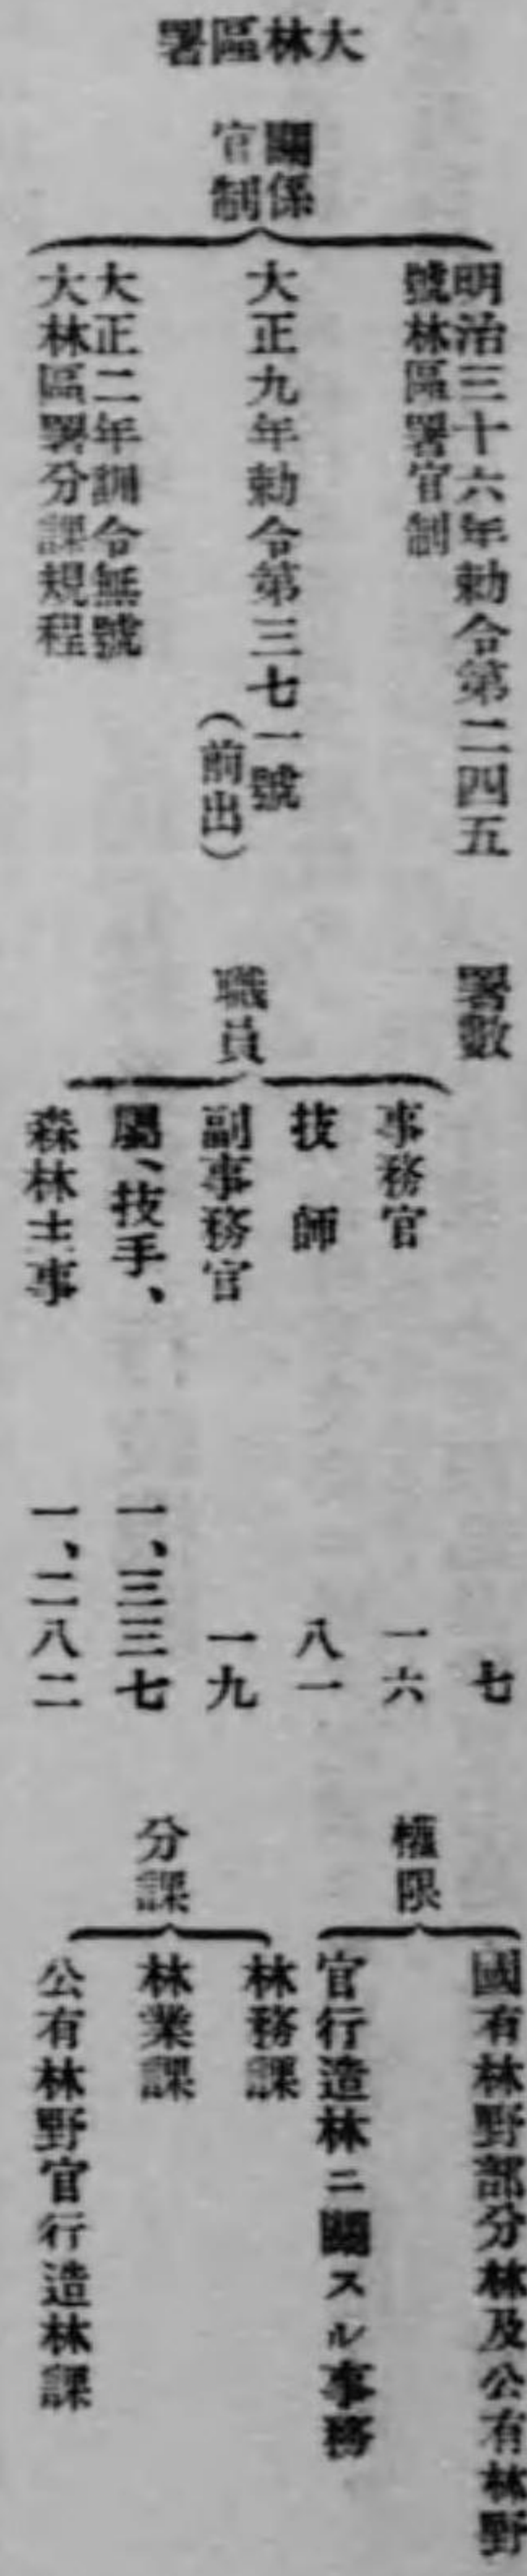 大林區署
關係
官制
明治三十六年勅令第二四五
號林區署官制
大正九年勅令第三七一號
(前出)
大正二年訓令無號
大林區署分課規程
署數 七
職員
事務官 一六
技師 八一
副事務官 一九
屬、技手、 一、三三七
森林主事 一、二八二
權限
國有林野部分林及公有林野
官行造林ニ關スル事務
分課
林務課
林業課
公有林野官行造林課